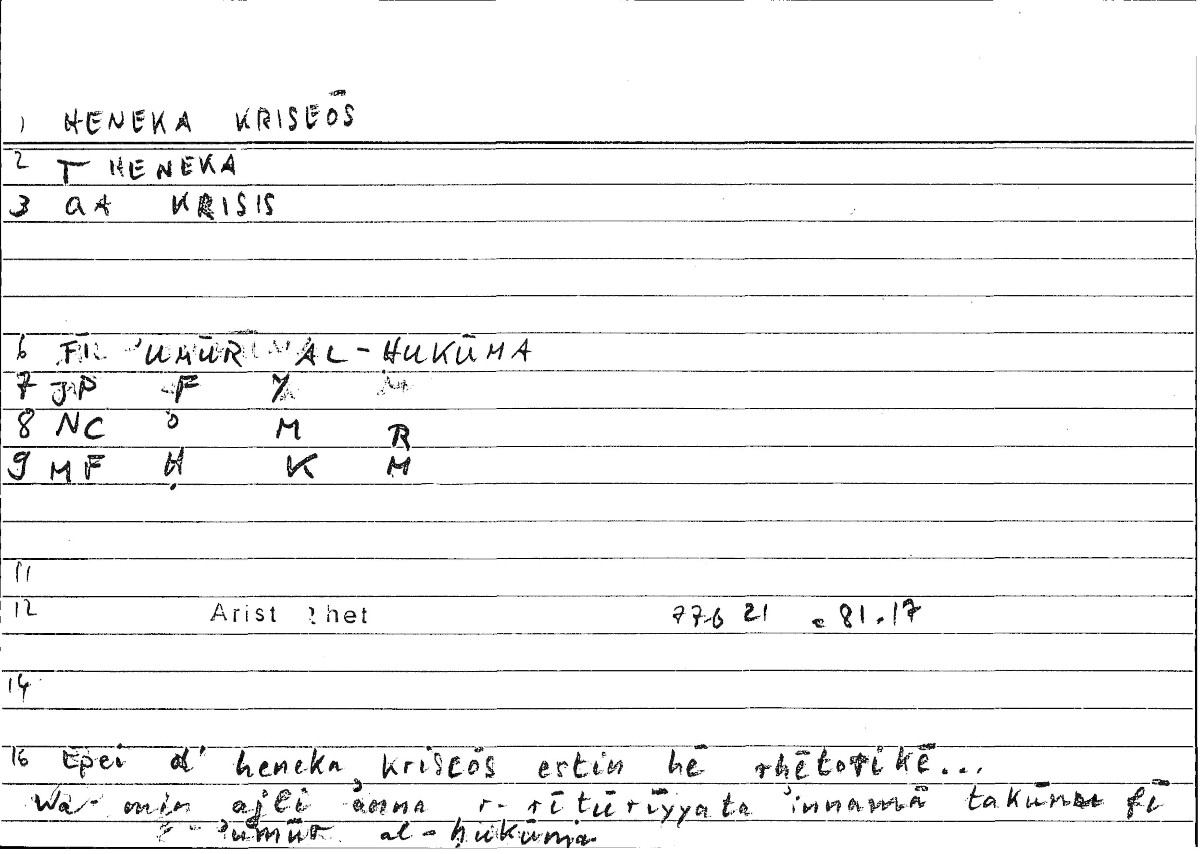 1 HENEKA KRISEŌS
2 T HENEKA
3 QA KRISIS
6 FĪ 'UMŪR AL-HUKŪMA
7 JP F Y
8 NC ʾ M R
9 MF Ḥ K M
11
12 Arist Rhet 77b 21 = 81.17
14
16 Epei d' heneka kriseōs estin hē rhētorikē...
Wa- min ajli ʾanna r-rīṭūrīyyata ʾinnamā takūnu fī
ʾumūr al-ḥukūma